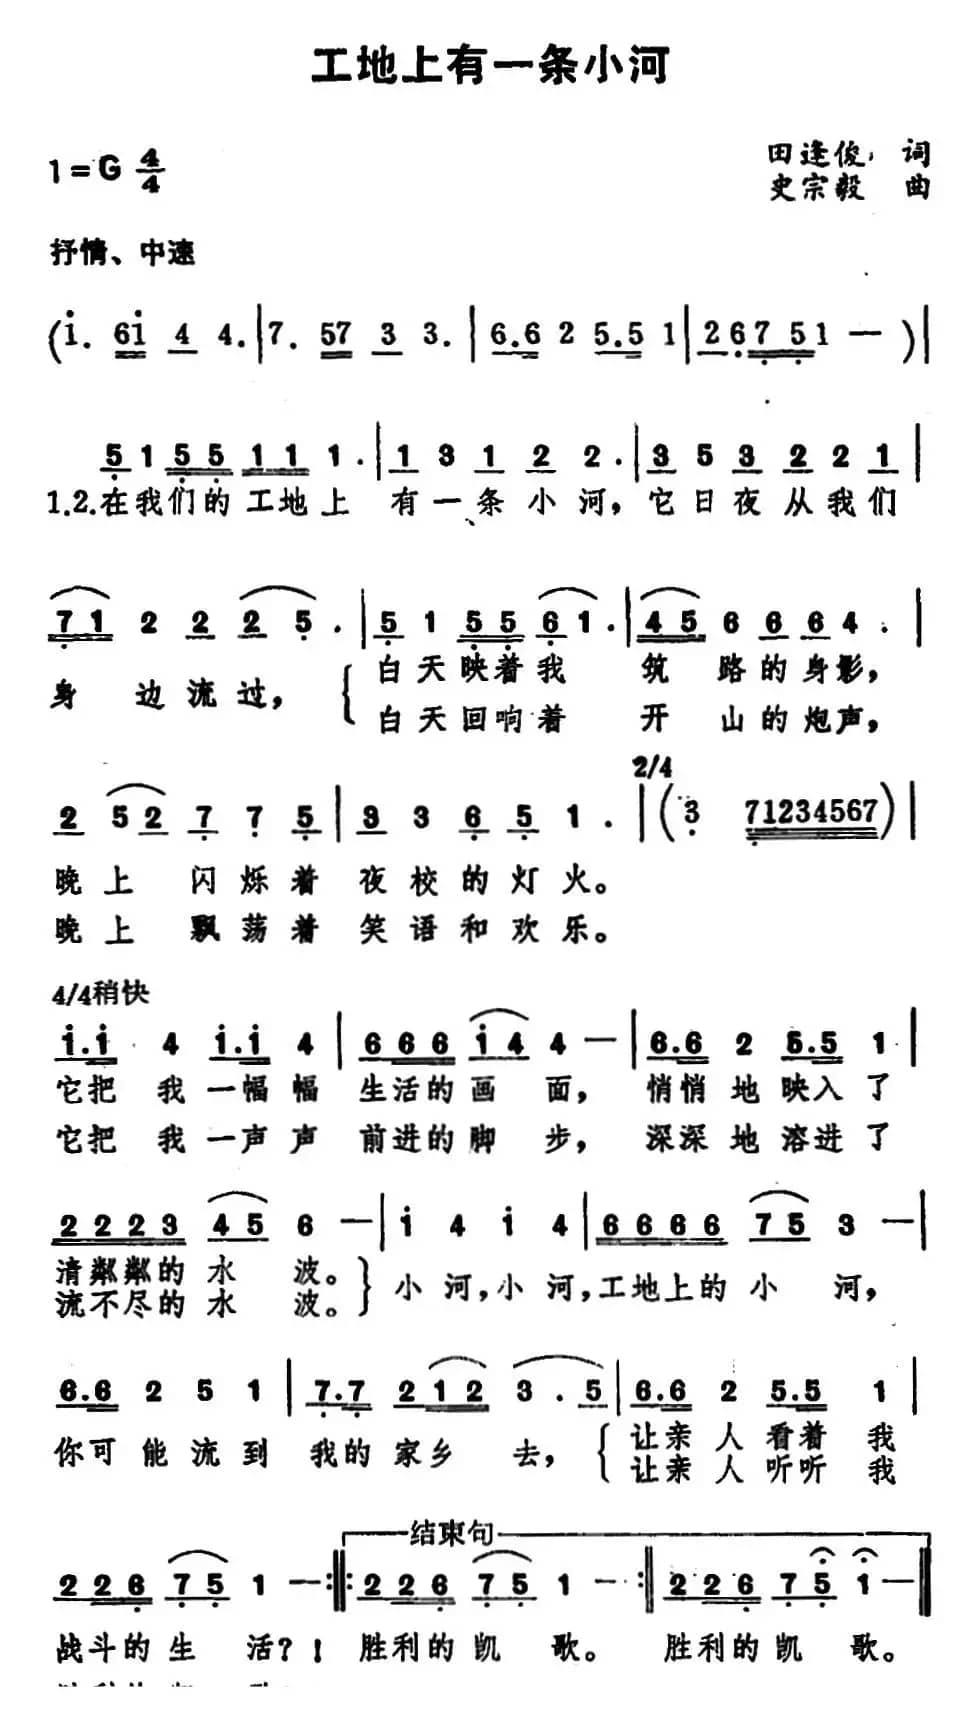 工地上有一条小河
1=G 4/4
田逢俊 词
史宗毅 曲
抒情、中速
(i. 6i 4 4. | 7. 57 3 3. | 6.6 2 5.5 1 | 2 6 7 5 1 — ) |
5 1 5 5 1 1 1 . | 1 3 1 2 2 . | 3 5 3 2 2 1 |
1.2.在我们的 工地上 有一条小河，它日夜从我们
7 1 2 2 2 5 . | 5 1 5 5 6 1 . | 4 5 6 6 6 4 . |
身 边流过， 白天映着我 筑 路的身影，
白天回响着 开 山的炮声，
2/4
2 5 2 7 7 5 | 3 3 6 5 1 . | ( 3 71234567 ) |
晚上 闪烁着 夜校的灯火。
晚上 飘荡着 笑语和欢乐。
4/4稍快
i.i 4 i.i 4 | 6 6 6 i 4 4 — | 6.6 2 5.5 1 |
它把 我一幅幅 生活的画 面， 悄悄地映入了
它把 我一声声 前进的脚 步， 深深地溶进了
2 2 2 3 4 5 6 — | i 4 i 4 | 6 6 6 6 7 5 3 — |
清粼粼的水 波。 小河，小河，工地上的小 河，
流不尽的水 波。
6.6 2 5 1 | 7.7 2 1 2 3 . 5 | 6.6 2 5.5 1 |
你可能流到 我的家乡 去， 让亲人看着我
让亲人听听我
结束句
2 2 6 7 5 1 — :‖: 2 2 6 7 5 1 — :‖ 2 2 6 7 5 1 — ‖
战斗的生 活？！ 胜利的凯 歌。 胜利的凯 歌。